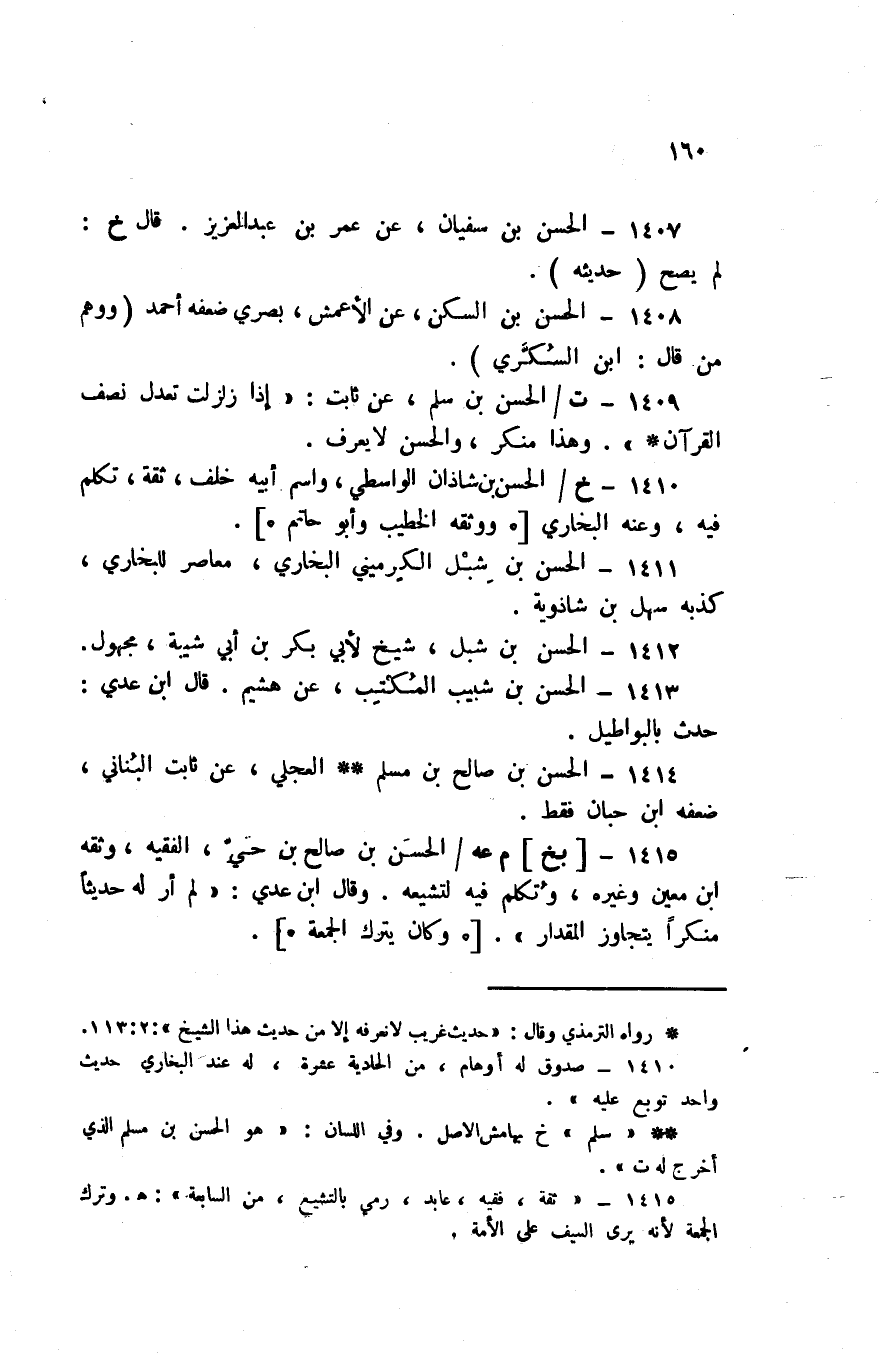 ١٦٠
١٤٠٧ – الحسن بن سفيان ، عن عمر بن عبدالعزيز . قال خ :
لم يصح ( حديثه ) .
١٤٠٨ – الحسن بن السكن ، عن الأعمش ، بصري ضعفه أحمد ( ووهم
من قال : ابن السُكَّري ) .
١٤٠٩ – ت / الحسن بن سلم ، عن ثابت : « إذا زلزلت تعدل نصف
القرآن* » . وهذا منكر ، والحسن لايعرف .
١٤١٠ – خ / الحسن بن شاذان الواسطي ، واسم أبيه خلف ، ثقة ، تكلم
فيه ، وعنه البخاري [٥ ووثقه الخطيب وأبو حاتم ٥] .
١٤١١ – الحسن بن شِبْل الكِرميني البخاري ، معاصر للبخاري ،
كذبه سهل بن شاذوية .
١٤١٢ – الحسن بن شبل ، شيخ لأبي بكر بن أبي شيبة ، مجهول.
١٤١٣ – الحسن بن شبيب المُكْتِيب ، عن هشيم . قال ابن عدي :
حدث بالبواطيل .
١٤١٤ – الحسن بن صالح بن مسلم ** العجلي ، عن ثابت البُناني ،
ضعفه ابن حبان فقط .
١٤١٥ – [ بخ ] م عه / الحسَن بن صالح بن حَيّ ، الفقيه ، وثقه
ابن معين وغيره ، وتُكلم فيه لتشيعه . وقال ابن عدي : « لم أر له حديثاً
منكراً يتجاوز المقدار » . [٥ وكان يترك الجمعة ٥] .
* رواه الترمذي وقال : «حديث غريب لانعرفه إلا من حديث هذا الشيخ» :٢:١١٣.
١٤١٠ – صدوق له أوهام ، من الحادية عشرة ، له عند البخاري حديث
واحد توبع عليه » .
** « سلم » خ بهامش الاصل . وفي اللسان : « هو الحسن بن مسلم الذي
أخرج له ت » .
١٤١٥ – « ثقة ، فقيه ، عابد ، رمي بالتشيع ، من السابعة» : ه . وترك
الجمعة لأنه يرى السيف على الأمة .